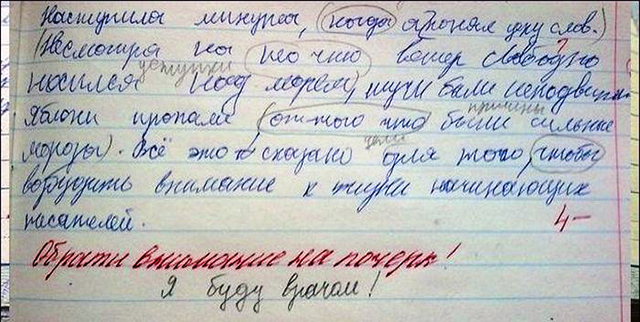 Наступила минута, (когда) я понял цену слов.
(Несмотря на то что) ветер свободно
уступки
носился над морем), тучи были неподвижны
причины
Яблони пропали (оттого что) были сильные
цели
морозы). Всё это сказано для того, чтобы
возбудить внимание к жизни начинающих
писателей.
4-
Обрати внимание на почерк!
Я буду врачом!